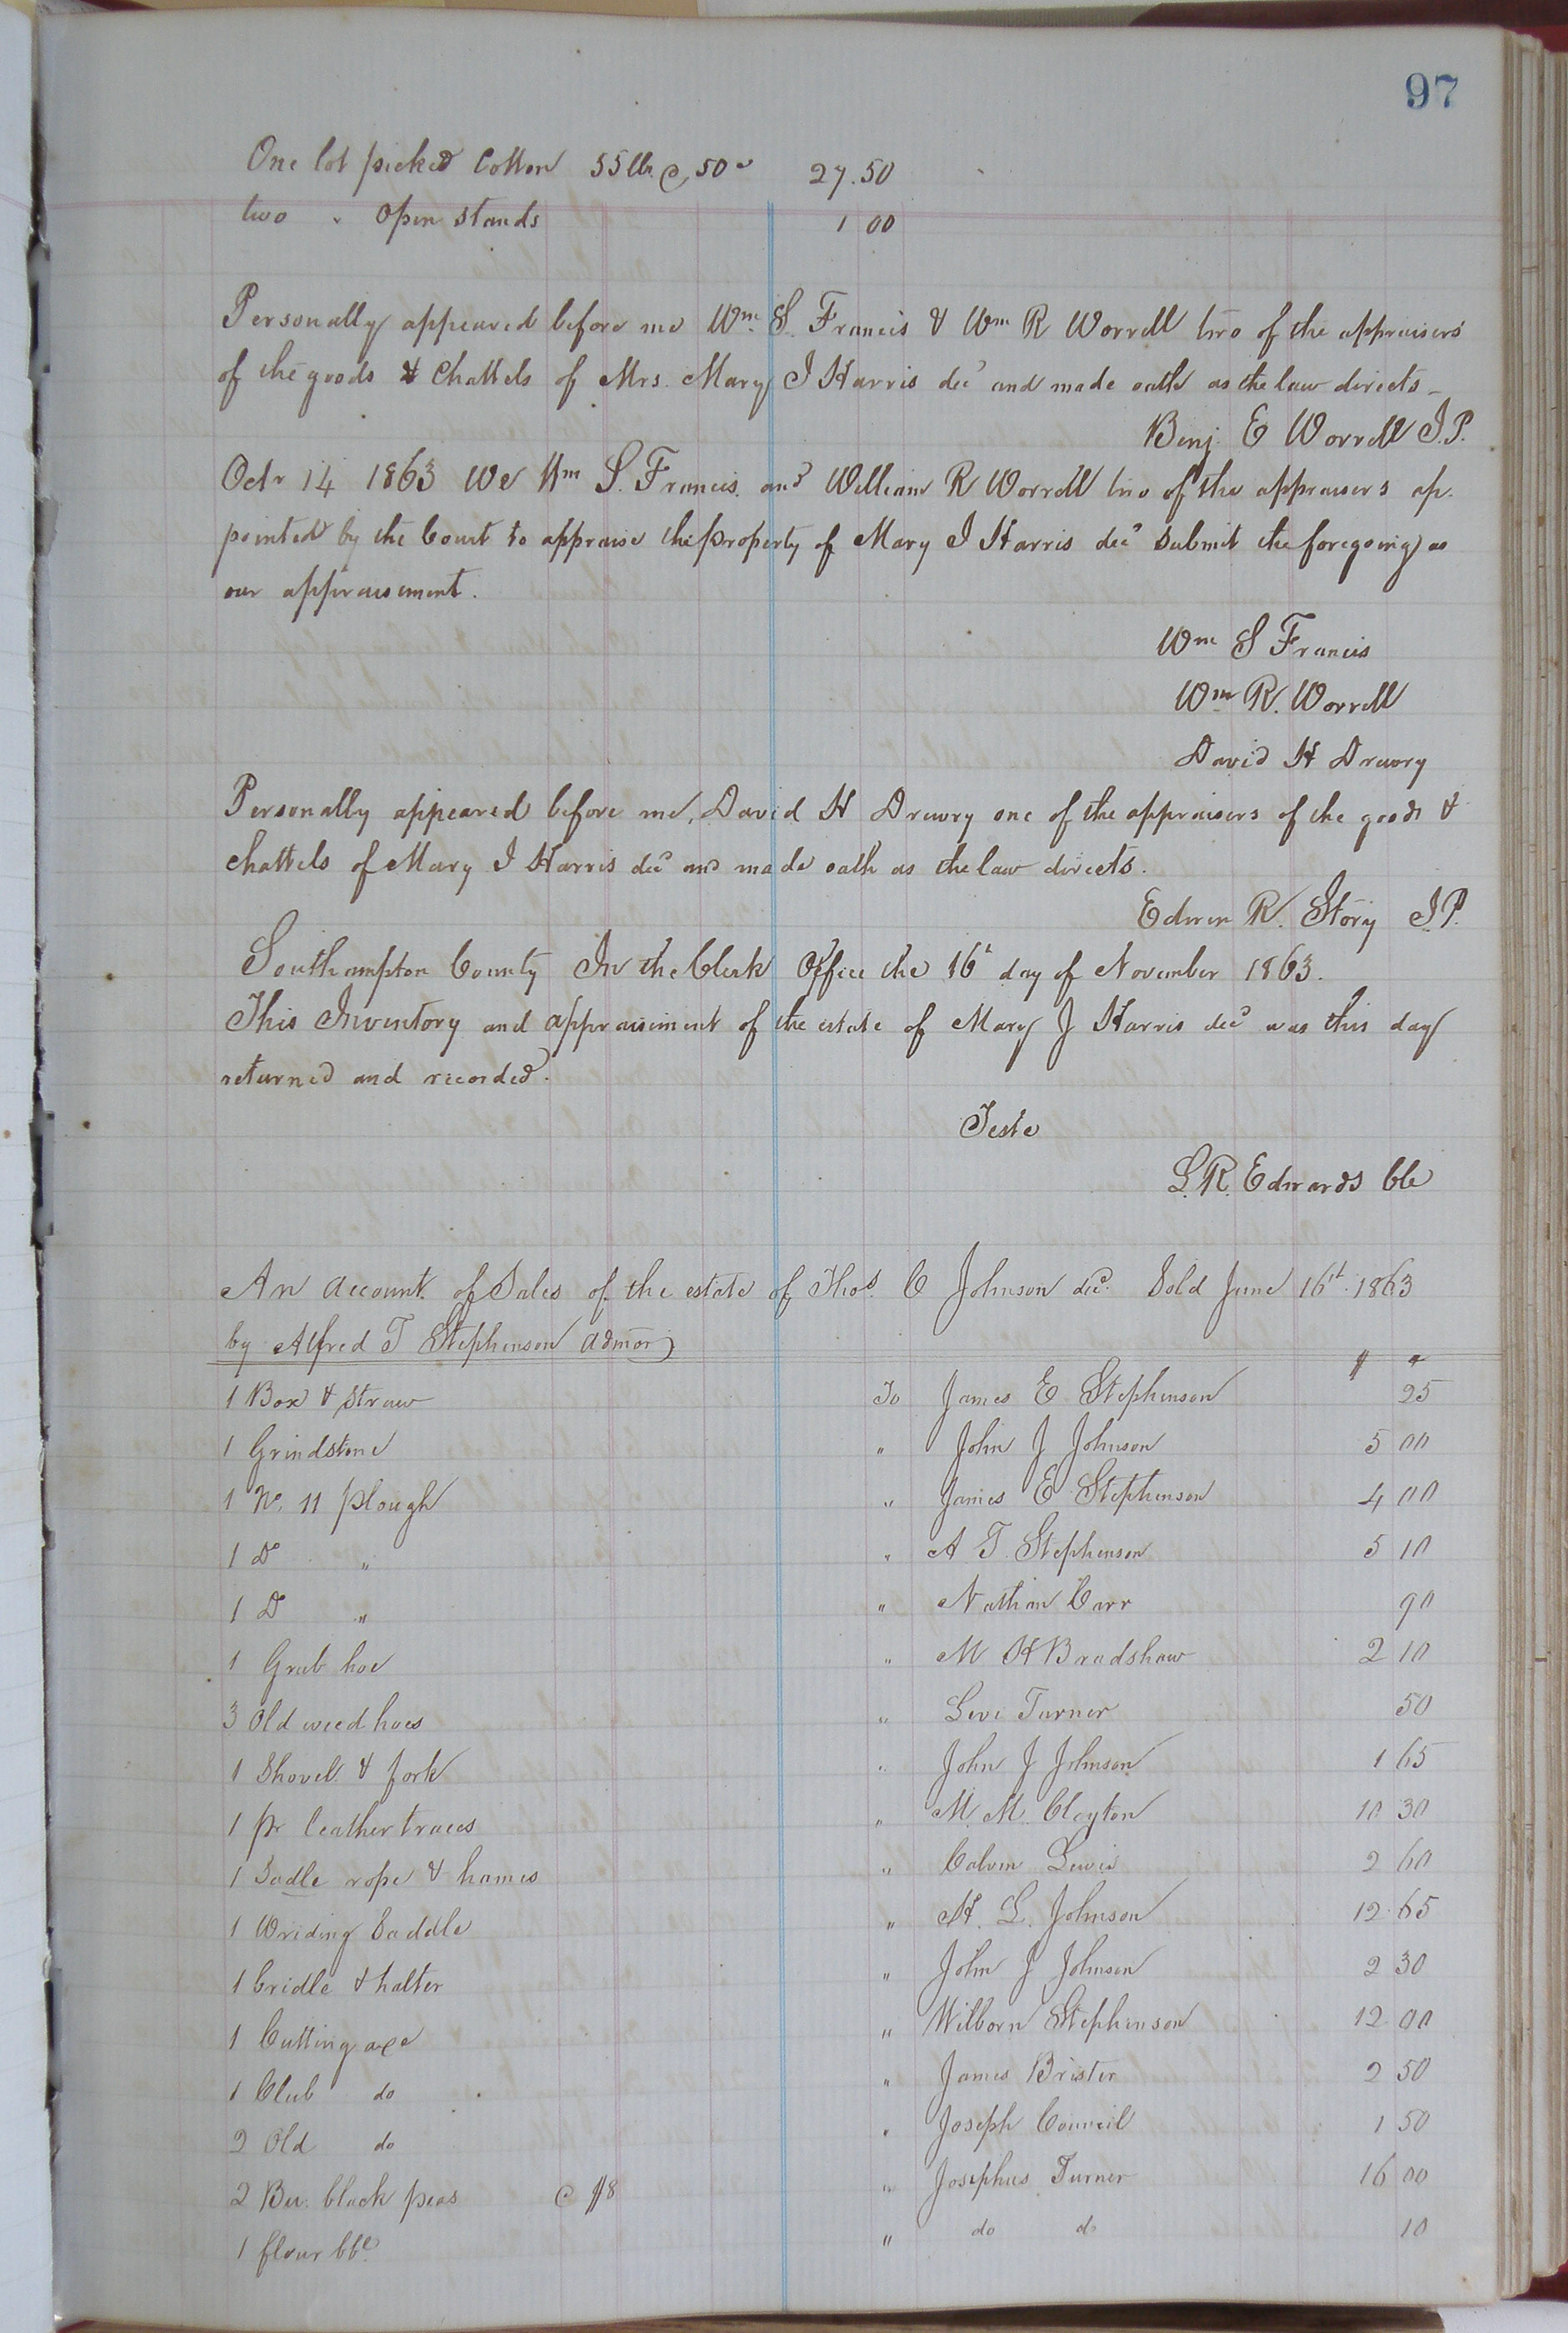 97
One lot picked Cotton 55 lbs @ 50c 27.50
two " Open stands 1 00
Personally appeared before me Wm S. Francis & Wm R Worrell two of the appraisers
of the goods & Chattels of Mrs. Mary J Harris decd and made oath as the law directs -
Benj. E Worrell J.P.
Octr 14 1863 We Wm S. Francis and William R Worrell two of the appraisers ap-
pointed by the Court to appraise the property of Mary J Harris decd submit the foregoing as
our appraisement.
Wm S Francis
Wm R. Worrell
David H Drewry
Personally appeared before me, David H Drewry one of the appraisers of the goods &
chattels of Mary J Harris decd and made oath as the law directs.
Edwin R. Story J.P.
Southampton County In the Clerk Office the 16t day of November 1863.
This Inventory and appraisement of the estate of Mary J Harris decd was this day
returned and recorded.
Teste
L.R. Edwards Clk
An account of Sales of the estate of Thos. C Johnson decd. Sold June 16th 1863
by Alfred T Stephenson admor
$ c
1 Box & straw To James E Stephenson 25
1 Grindstone " John J Johnson 5 00
1 No. 11 plough " James E Stephenson 4 00
1 Do " " A T. Stephenson 5 10
1 D " " Nathan Carr 90
1 Grub hoe " M H Bradshaw 2 10
3 Old weed hoes " Levi Turner 50
1 Shovel & fork " John J Johnson 1 65
1 pr leather traces " M. M. Clayton 10 30
1 Sadle rope & hames " Calvin Lewis 2 60
1 Wriding Saddle " H. L. Johnson 12.65
1 bridle & halter " John J Johnson 2 30
1 Cutting axe " Wilborn Stephenson 12 00
1 Club do " James Brister 2 50
2 Old do " Joseph Council 1 50
2 Bu. black peas @ $8 " Josephus Turner 16 00
1 flour bbl. " do do 10